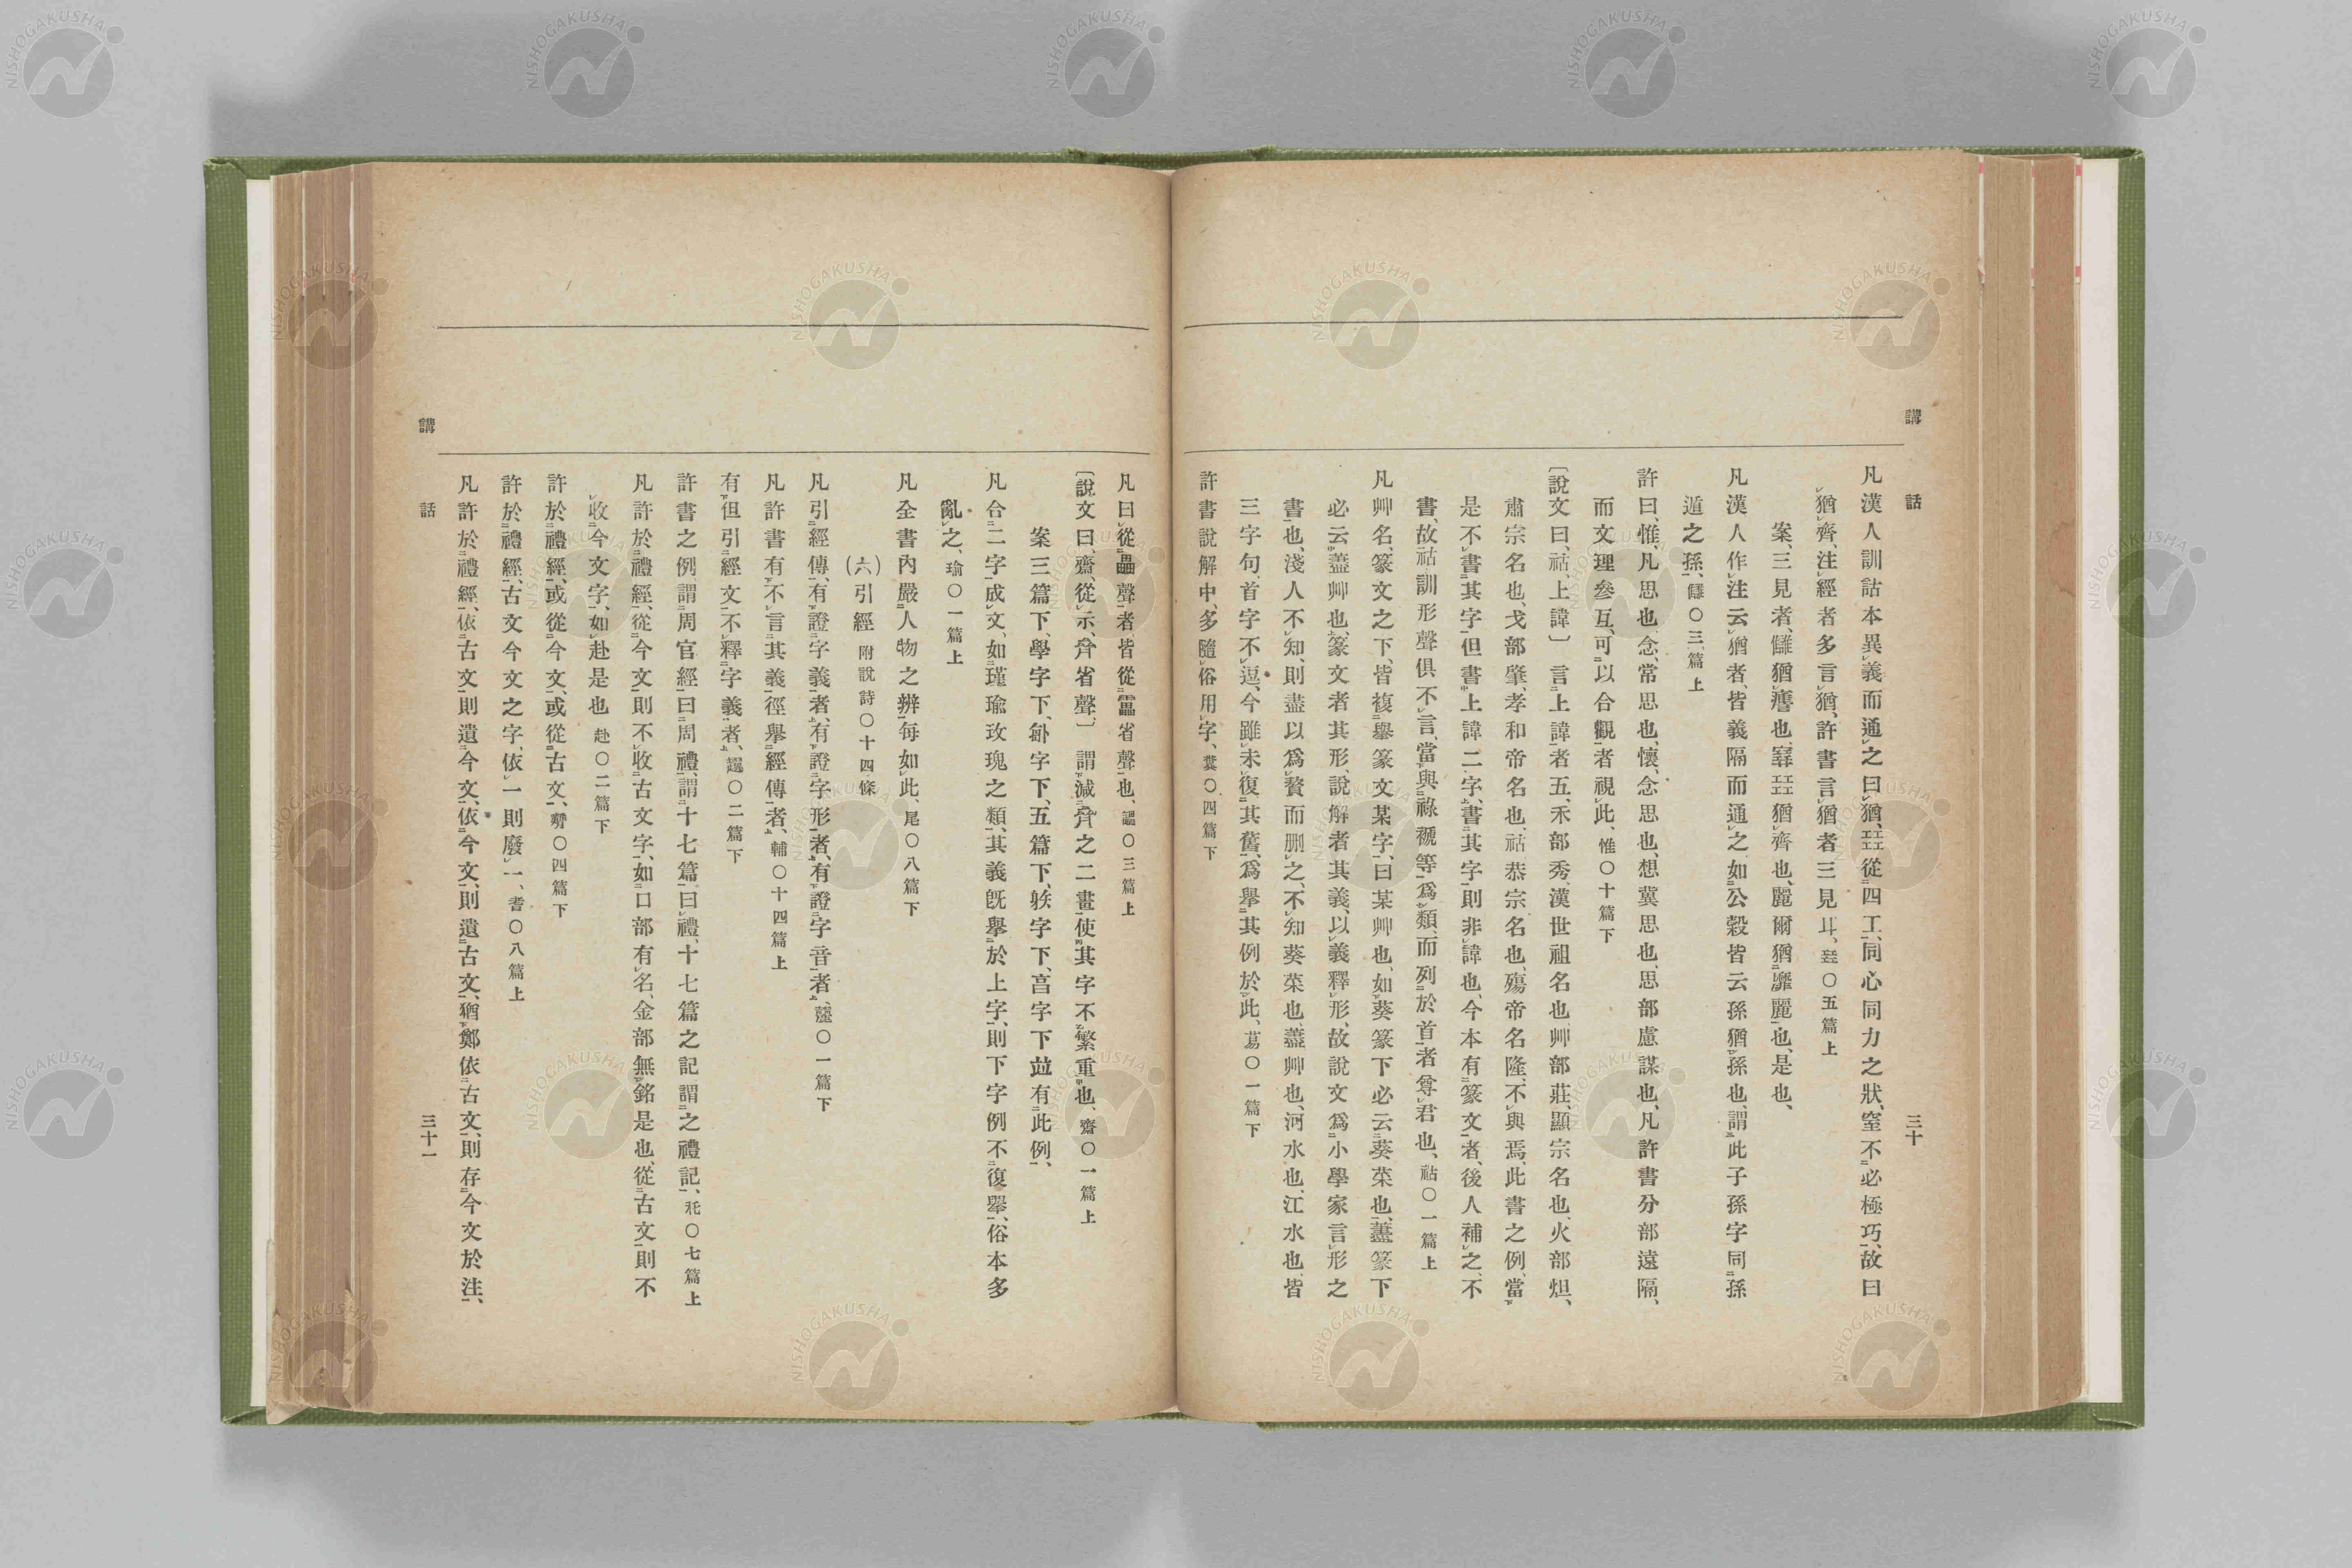 講 話 三十
凡漢人訓詁本異義而通之曰猶、㠭從四工、同心同力之狀、窒不必極巧、故曰
猶齊、注經者多言猶、許書言猶者三見耳、㠭〇五篇上
案、三見者、讎猶䧹也、窒㠭猶齊也、麗爾猶靡麗也、是也、
凡漢人作注云猶者、皆義隔而通之、如公穀皆云孫猶孫也、謂此子孫字同孫
遁之孫、讎〇三篇上
許曰、惟、凡思也、念、常思也、懷、念思也、想冀思也、思部慮謀也、凡許書分部遠隔、
而文理參互、可以合觀者視此、惟〇十篇下
〔說文曰、祜上諱〕 言上諱者五、禾部秀、漢世祖名也、艸部莊、顯宗名也、火部炟、
肅宗名也、戈部肇、孝和帝名也、祜恭宗名也、殤帝名隆、不與焉、此書之例、當
是不書其字、但書上諱二字、書其字則非諱也、今本有篆文者、後人補之、不
書、故祜訓形聲俱不言、當與祿褫等爲類、而列於首者尊君也、祜〇一篇上
凡艸名、篆文之下、皆複舉篆文某字、曰某艸也、如葵篆下必云葵菜也、藎篆下
必云藎艸也、篆文者其形、說解者其義、以義釋形、故說文爲小學家言形之
書也、淺人不知、則盡以爲贅而删之、不知葵菜也、藎艸也、河水也、江水也、皆
三字句、首字不逗、今雖未復其舊、爲舉其例於此、葛〇一篇下
許書說解中、多隨俗用字、糞〇四篇下
凡曰從畾聲者、皆從靁省聲也、讄〇三篇上
〔說文曰、齋、從示、齊省聲〕 謂減齊之二畫、使其字不繁重也、齋〇一篇上
案三篇下、學字下、斅字下、五篇下、䠶字下、亯字下竝有此例、
凡合二字成文、如瑾瑜玫瑰之類、其義旣舉於上字、則下字例不復舉、俗本多
亂之、瑜〇一篇上
凡全書內嚴人物之辨、每如此、尾〇八篇下
(六)引經 附說詩〇十四條
凡引經傳、有證字義者、有證字形者、有證字音者、蘳〇一篇下
凡許書有不言其義、徑舉經傳者、輔〇十四篇上
有但引經文不釋字義者、趩〇二篇下
許書之例謂周官經曰周禮、謂十七篇曰禮、十七篇之記謂之禮記、秅〇七篇上
凡許於禮經、從今文則不收古文字、如口部有名、金部無銘是也、從古文則不
收今文字、如赴是也 赴〇二篇下
許於禮經、或從今文、或從古文、臑〇四篇下
許於禮經、古文今文之字、依一則廢一、耆〇八篇上
凡許於禮經、依古文則遺今文、依今文、則遺古文、猶鄭依古文、則存今文於注、
講 話 三十一